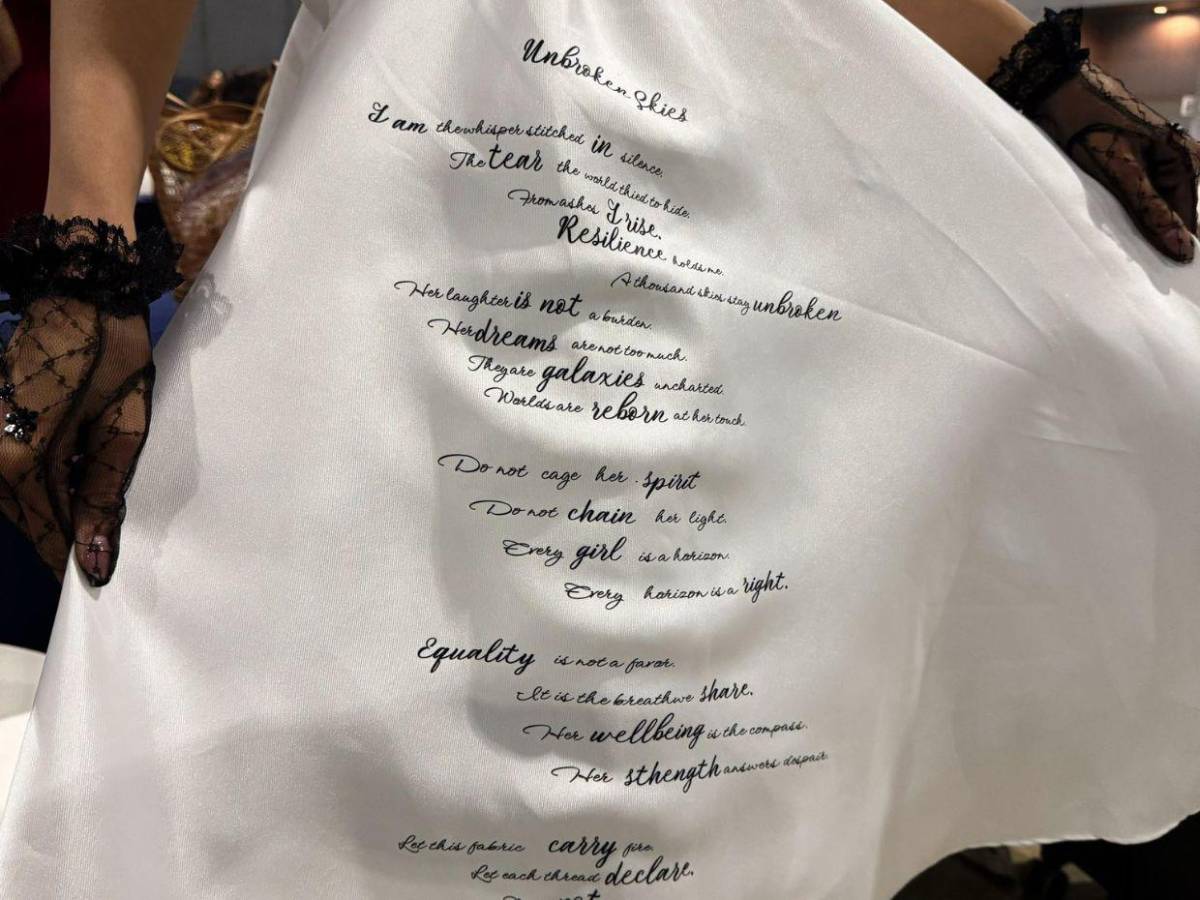 Unbroken Skies
I am the whisper stitched in silence.
The tear the world thied to hide.
From ashes I rise.
Resilience holds me.
A thousand skies stay unbroken
Her laughter is not a burden.
Her dreams are not too much.
They are galaxies uncharted.
Worlds are reborn at her touch.
Do not cage her . spirit
Do not chain her light.
Every girl is a horizon.
Every horizon is a right.
Equality is not a favor.
It is the breath we share.
Her wellbeing is the compass.
Her sthength answers despair.
Let this fabric carry fire.
Let each thread declare.
not